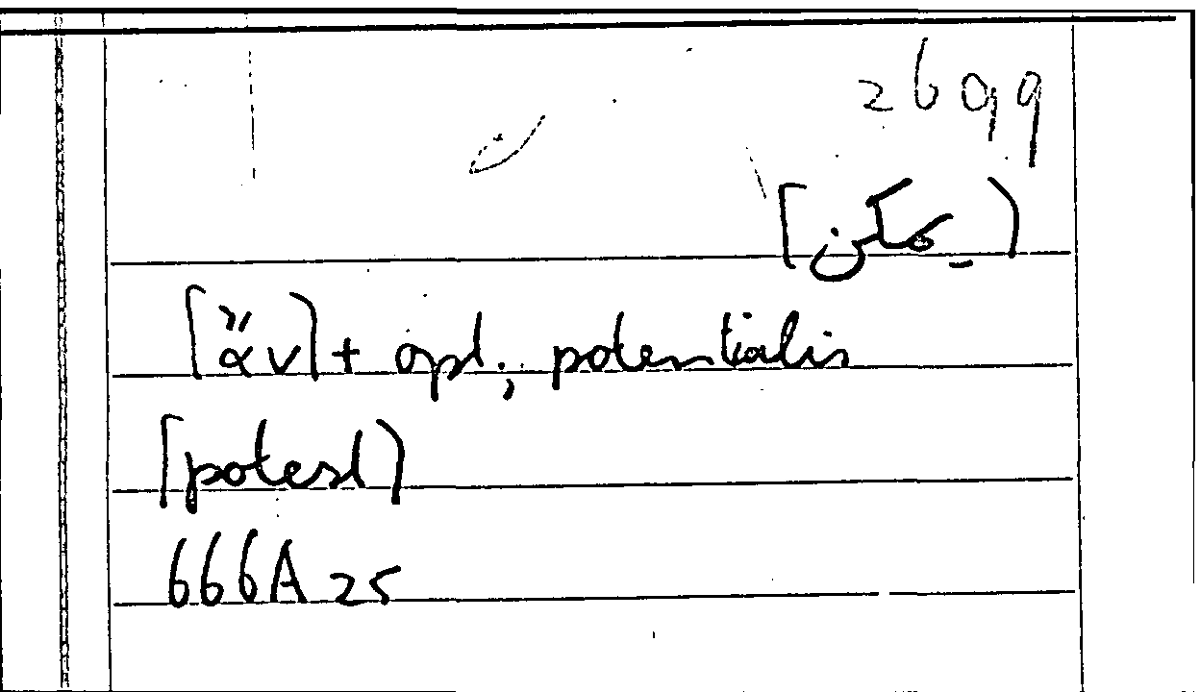 2699
[يمكن]
[ἄν] + opt., potentialis
[potest]
666A25